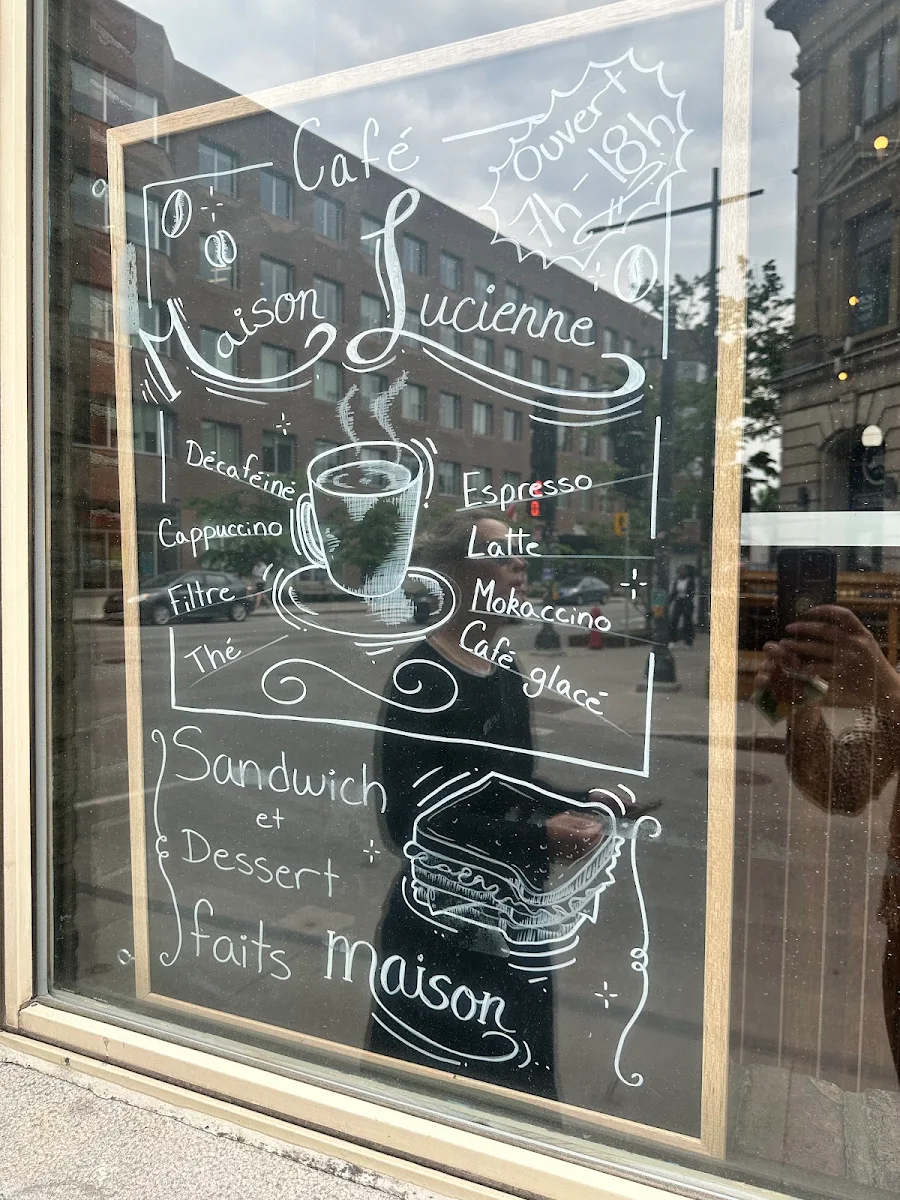 Café
Ouvert
7h-18h
Maison Lucienne
Décaféiné
Cappuccino
Filtre
Thé
Espresso
Latte
Mokaccino
Café glacé
Sandwich
et
Dessert
faits maison